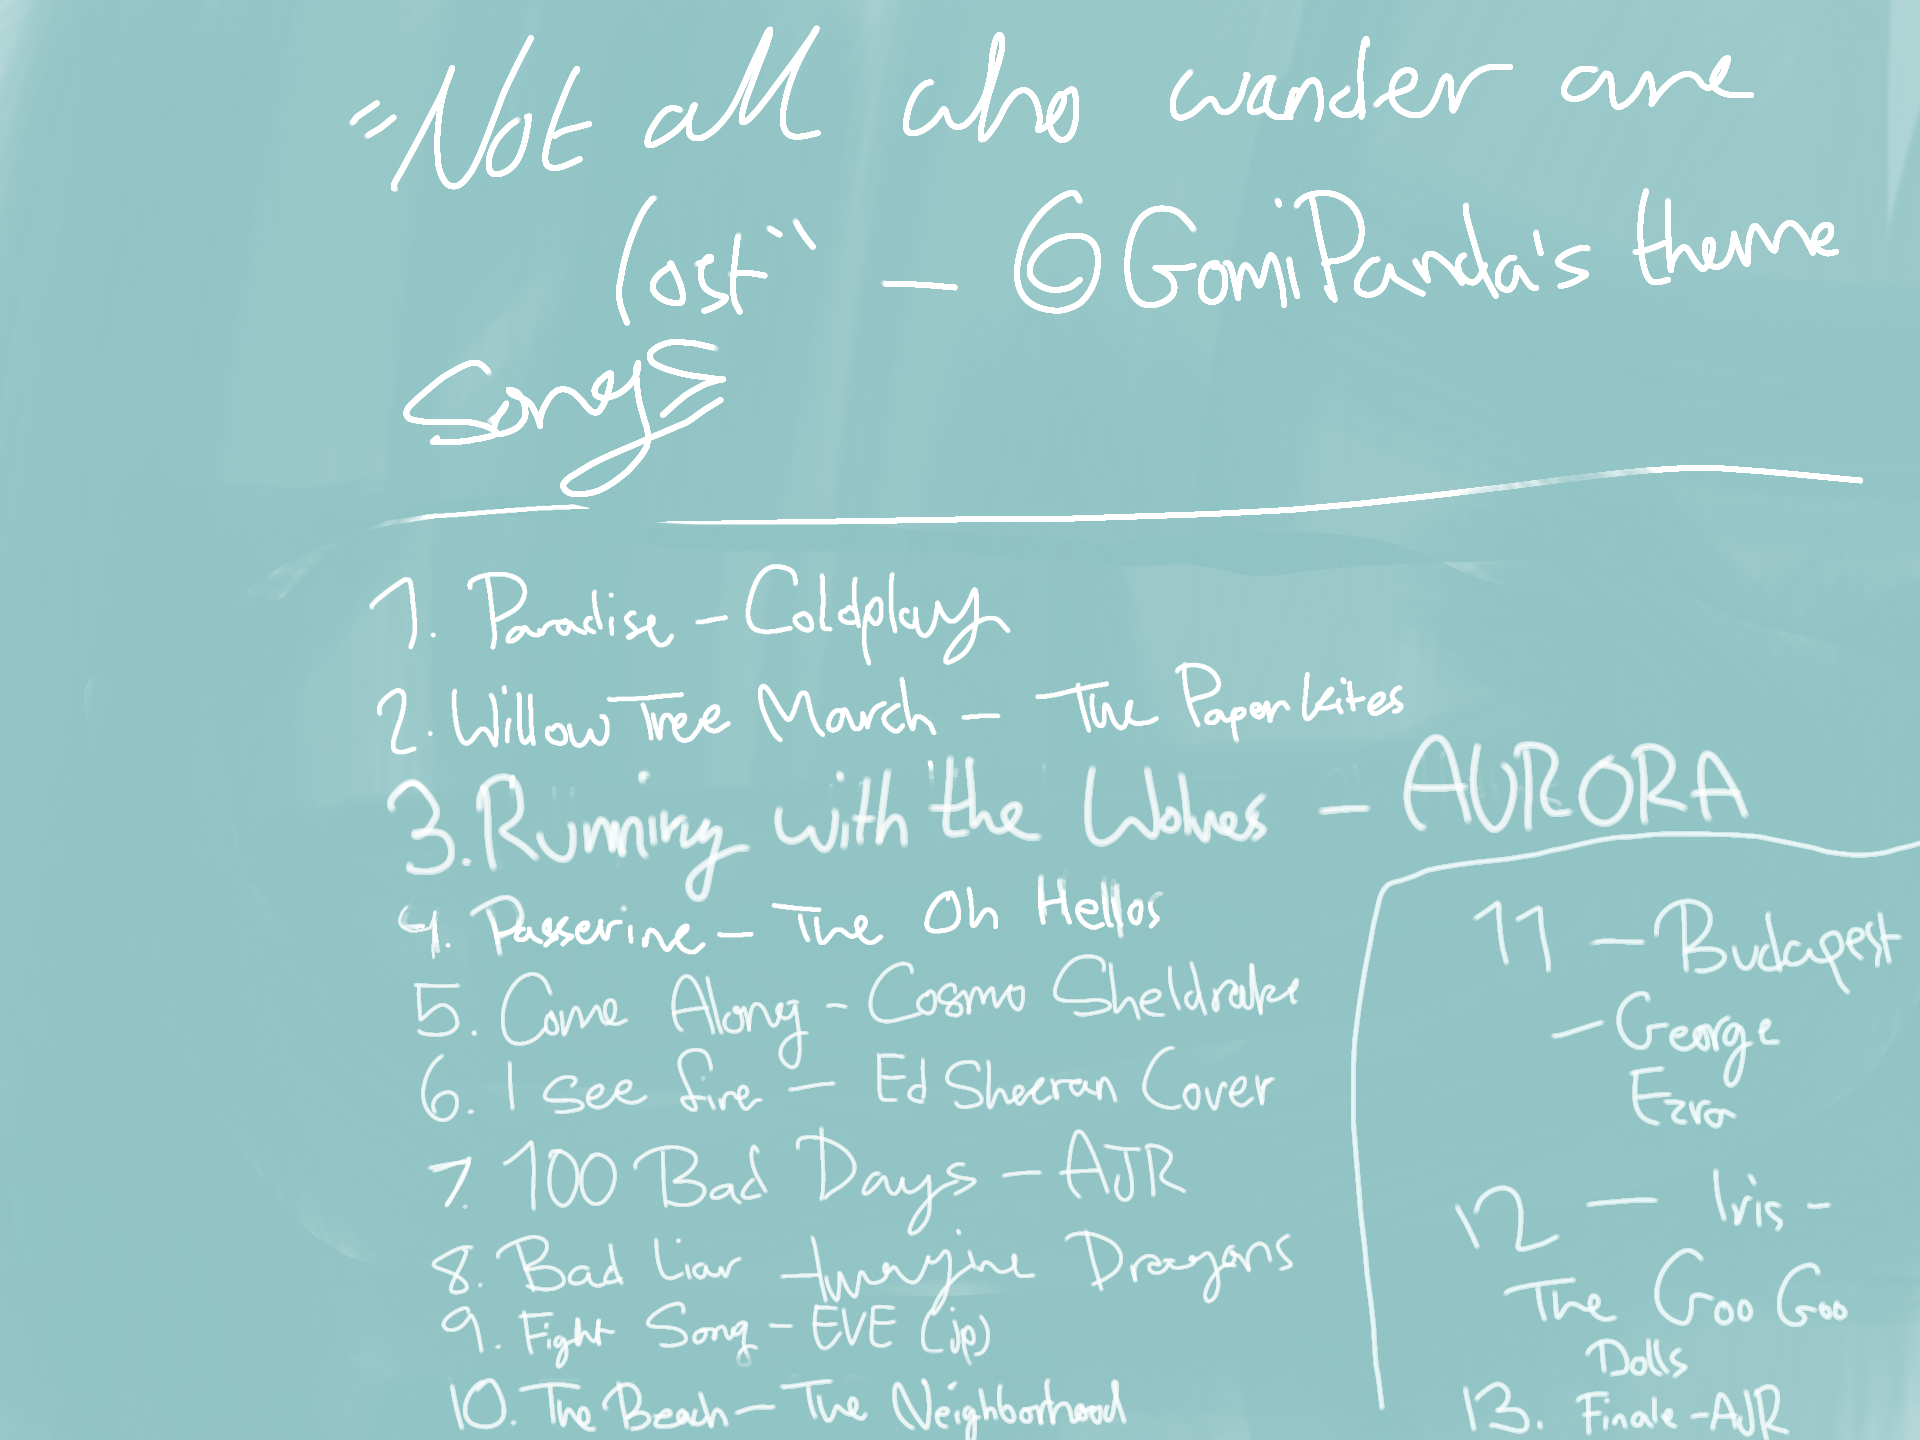 "Not all who wander are
lost" — ©GomiPanda's theme
songs
1. Paradise - Coldplay
2. Willow Tree March - The Paper Kites
3. Running with the Wolves - AURORA
4. Passerine - The Oh Hellos
5. Come Along - Cosmo Sheldrake
6. I see fire - Ed Sheeran Cover
7. 100 Bad Days - AJR
8. Bad Liar - Imagine Dragons
9. Fight Song - EVE (jp)
10. The Beach - The Neighborhood
11 - Budapest
- George
Ezra
12 - Iris -
The Goo Goo
Dolls
13. Finale - AJR